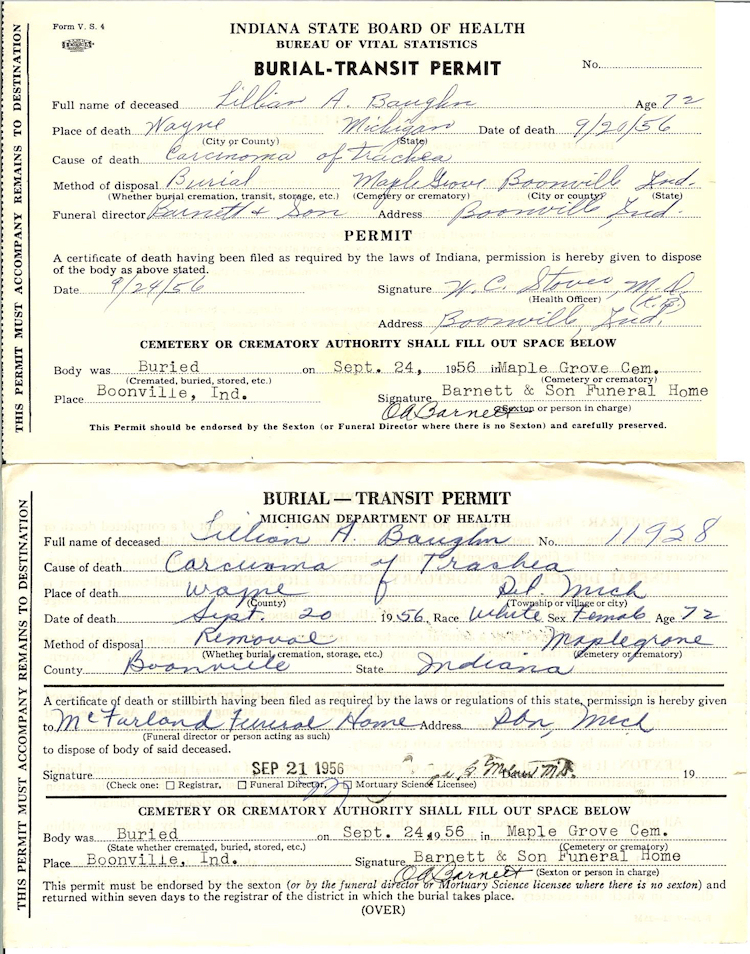 THIS PERMIT MUST ACCOMPANY REMAINS TO DESTINATION
Form V. S. 4
INDIANA STATE BOARD OF HEALTH
BUREAU OF VITAL STATISTICS
BURIAL-TRANSIT PERMIT
No.
Full name of deceased Lillian A. Baughn Age 72
Place of death Wayne Michigan Date of death 9/20/56
(City or County) (State)
Cause of death Carcinoma of Trachea
Method of disposal Burial Maple Grove Boonville Ind.
(Whether burial, cremation, transit, storage, etc.) (Cemetery or crematory) (City or county) (State)
Funeral director Barnett & Son Address Boonville, Ind.
PERMIT
A certificate of death having been filed as required by the laws of Indiana, permission is hereby given to dispose
of the body as above stated.
Date 9/24/56 Signature W. C. Stover, M.D.
(Health Officer)
Address Boonville, Ind.
CEMETERY OR CREMATORY AUTHORITY SHALL FILL OUT SPACE BELOW
Body was Buried on Sept. 24, 1956 in Maple Grove Cem.
(Cremated, buried, stored, etc.) (Cemetery or crematory)
Place Boonville, Ind. Signature Barnett & Son Funeral Home
OA Barnett (Sexton or person in charge)
This Permit should be endorsed by the Sexton (or Funeral Director where there is no Sexton) and carefully preserved.
THIS PERMIT MUST ACCOMPANY REMAINS TO DESTINATION
BURIAL — TRANSIT PERMIT
MICHIGAN DEPARTMENT OF HEALTH
Full name of deceased Lillian A. Baughn No. 11928
Cause of death Carcinoma of Trachea
Place of death Wayne Det. Mich
(County) (Township or village or city)
Date of death Sept. 20 1956 Race White Sex Female Age 72
Method of disposal Removal Maplegrove
(Whether burial, cremation, storage, etc.) (Cemetery or crematory)
County Boonville State Indiana
A certificate of death or stillbirth having been filed as required by the laws or regulations of this state, permission is hereby given
to McFarland Funeral Home Address Mich
(Funeral director or person acting as such)
to dispose of body of said deceased.
Signature SEP 21 1956 M.D. 19
(Check one: ☐ Registrar, ☐ Funeral Director, ☐ Mortuary Science Licensee)
CEMETERY OR CREMATORY AUTHORITY SHALL FILL OUT SPACE BELOW
Body was Buried on Sept. 24, 1956 in Maple Grove Cem.
(State whether cremated, buried, stored, etc.) (Cemetery or crematory)
Place Boonville, Ind. Signature Barnett & Son Funeral Home
OA Barnett (Sexton or person in charge)
This permit must be endorsed by the sexton (or by the funeral director or Mortuary Science licensee where there is no sexton) and
returned within seven days to the registrar of the district in which the burial takes place.
(OVER)